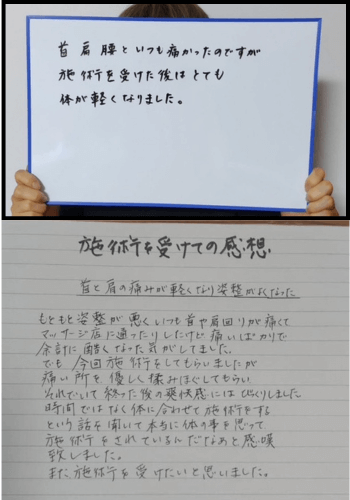 首 肩 腰 と いつも 痛かったのですが
施術を受けた後はとても
体が軽くなりました。
施術を受けての感想
首と肩の痛みが軽くなり姿整がよくなった
もともと姿整が悪くいつも首や肩回りが痛くて
マッサージ店に通ったりしたけど痛いばかりで
余計に酷くなった気がしてました。
でも今回施術をしてもらいましたが
痛い所を優しく揉みほぐしてもらい
それでいて終った後の爽快感にはびっくりしました
時間ではなく体に合わせて施術をする
という話を聞いて本当に体の事を思って
施術をされているんだなあと感嘆
致しました。
また施術を受けたいと思いました。